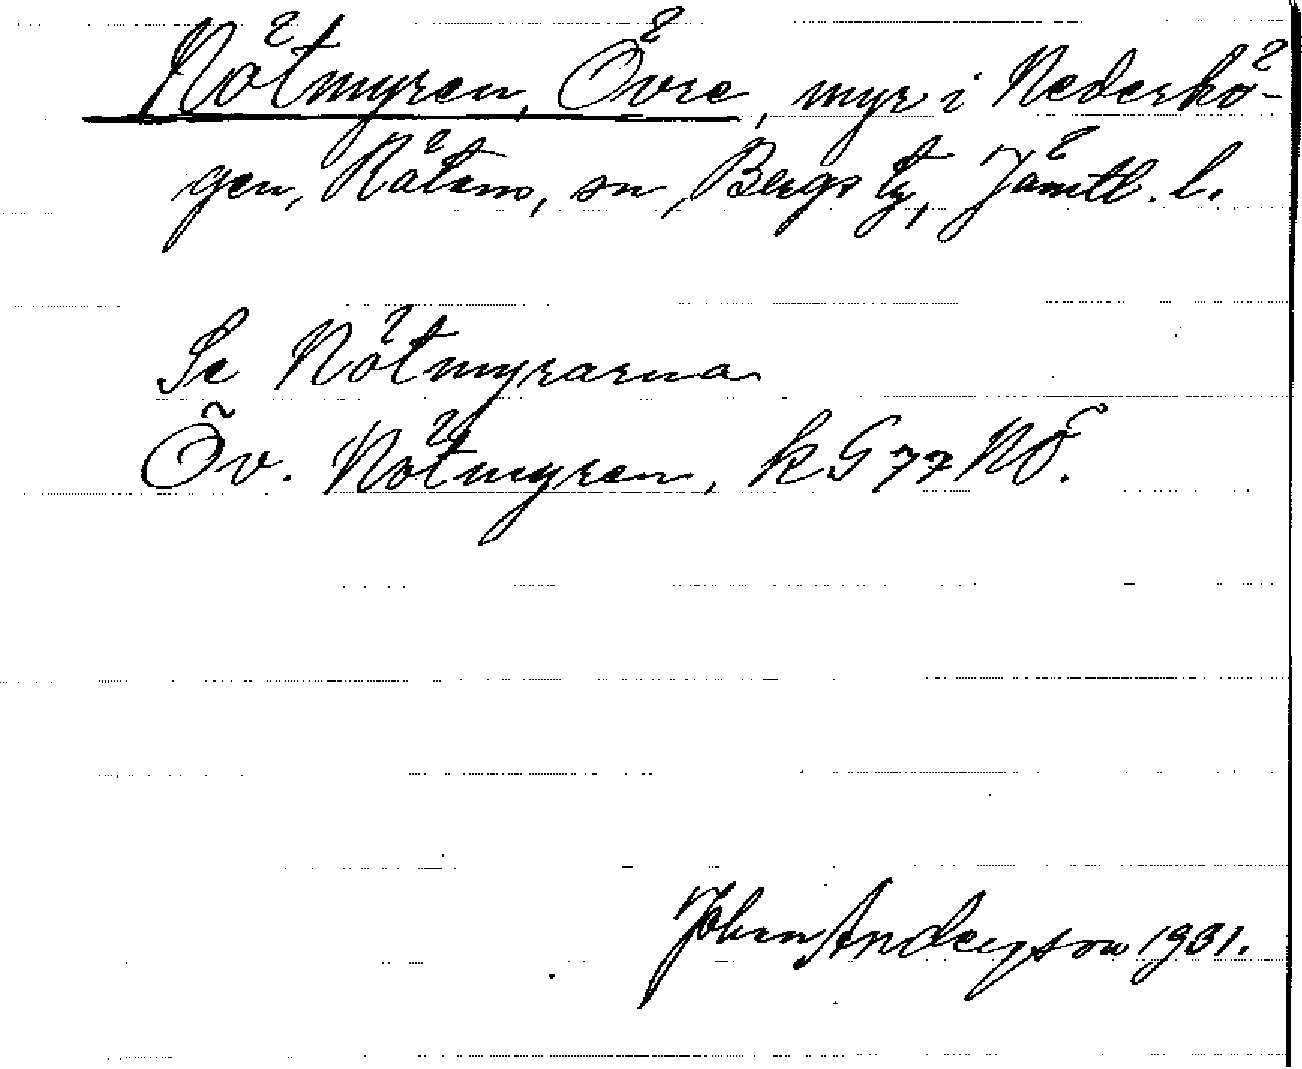 Nötmyren, Övre, myr i Nederhö-
gen, Rätans, sn, Bergs tg, Jämtl. l.
Se Nötmyrarna
Öv. Nötmyren, k G 77 NÖ.
John Andersson 1931.